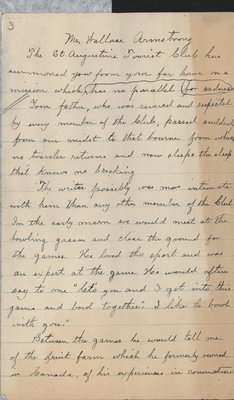 3
Mr. Wallace Armstrong
The St. Augustine Tourist Club has
summoned you from your far home on a
mission which has no parallel (for sadness
Your father, who was revered and respected
by every member of the Club, passed suddenly
from our midst to that bourne from which
no traveler returns and now sleeps the sleep
that knows no breaking.
The writer possibly was more intimate
with him than any other member of the Club
In the early morn we would meet at the
bowling green and clear the ground for
the games. He loved the sport and was
an expert at the game He would often
say to me "let's you and I get into this
game and bowl together". I like to bowl
with you."
Between the games he would tell me
of the fruit farm which he formerly owned
in Canada, of his experiences in connection